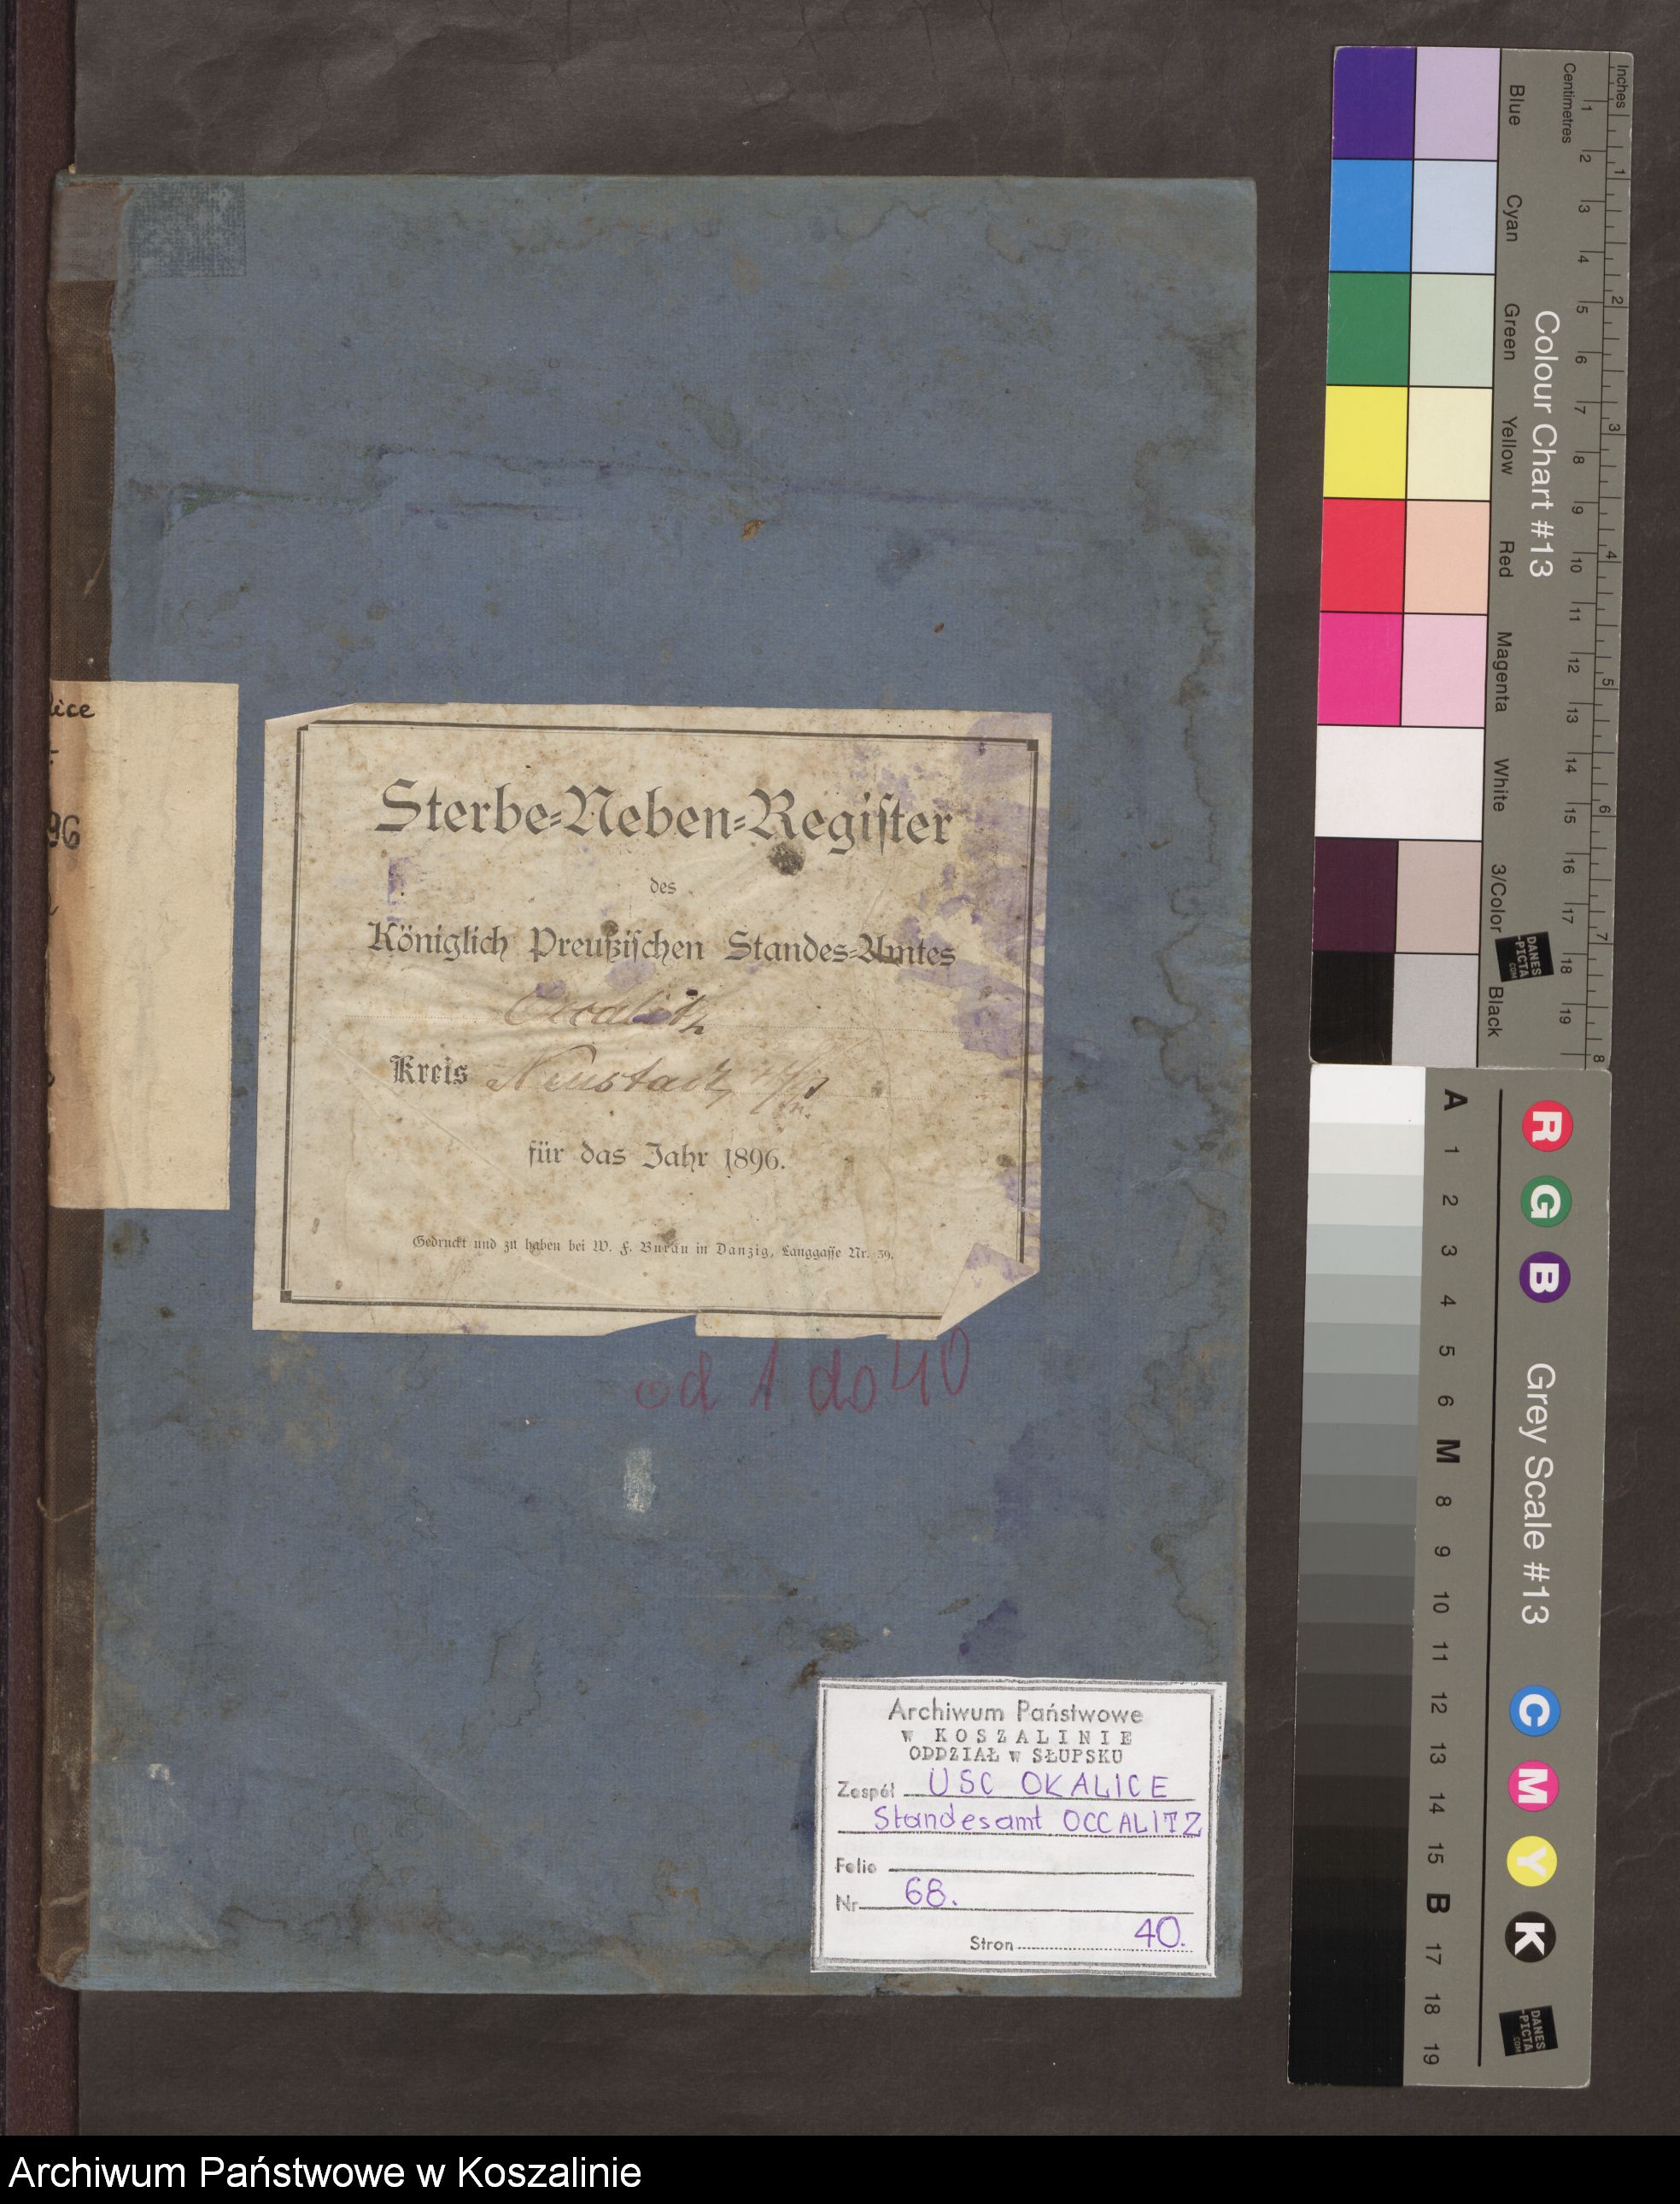 lice
96
Sterbe=Neben=Regiſter
des
Königlich Preußiſchen Standes=Amtes
Occalitz
Kreis Neustadt W/Pr.
für das Jahr 1896.
Gedruckt und zu haben bei W. F. Burau in Danzig, Langgaſſe Nr. 39.
od 1 do 40
Archiwum Państwowe
w KOSZALINIE
ODDZIAŁ w SŁUPSKU
Zespół USC OKALICE
Standesamt OCCALITZ
Folio
Nr 68.
Stron 40.
Inches 1 2 3 4 5 6 7 8
Centimetres 1 2 3 4 5 6 7 8 9 10 11 12 13 14 15 16 17 18 19
Colour Chart #13
Blue Cyan Green Yellow Red Magenta White 3/Color Black
DANES
-PICTA
.COM
A 1 2 3 4 5 6 M 8 9 10 11 12 13 14 15 B 17 18 19
R G B
Grey Scale #13
C M Y K
DANES
-PICTA
.COM
Archiwum Państwowe w Koszalinie